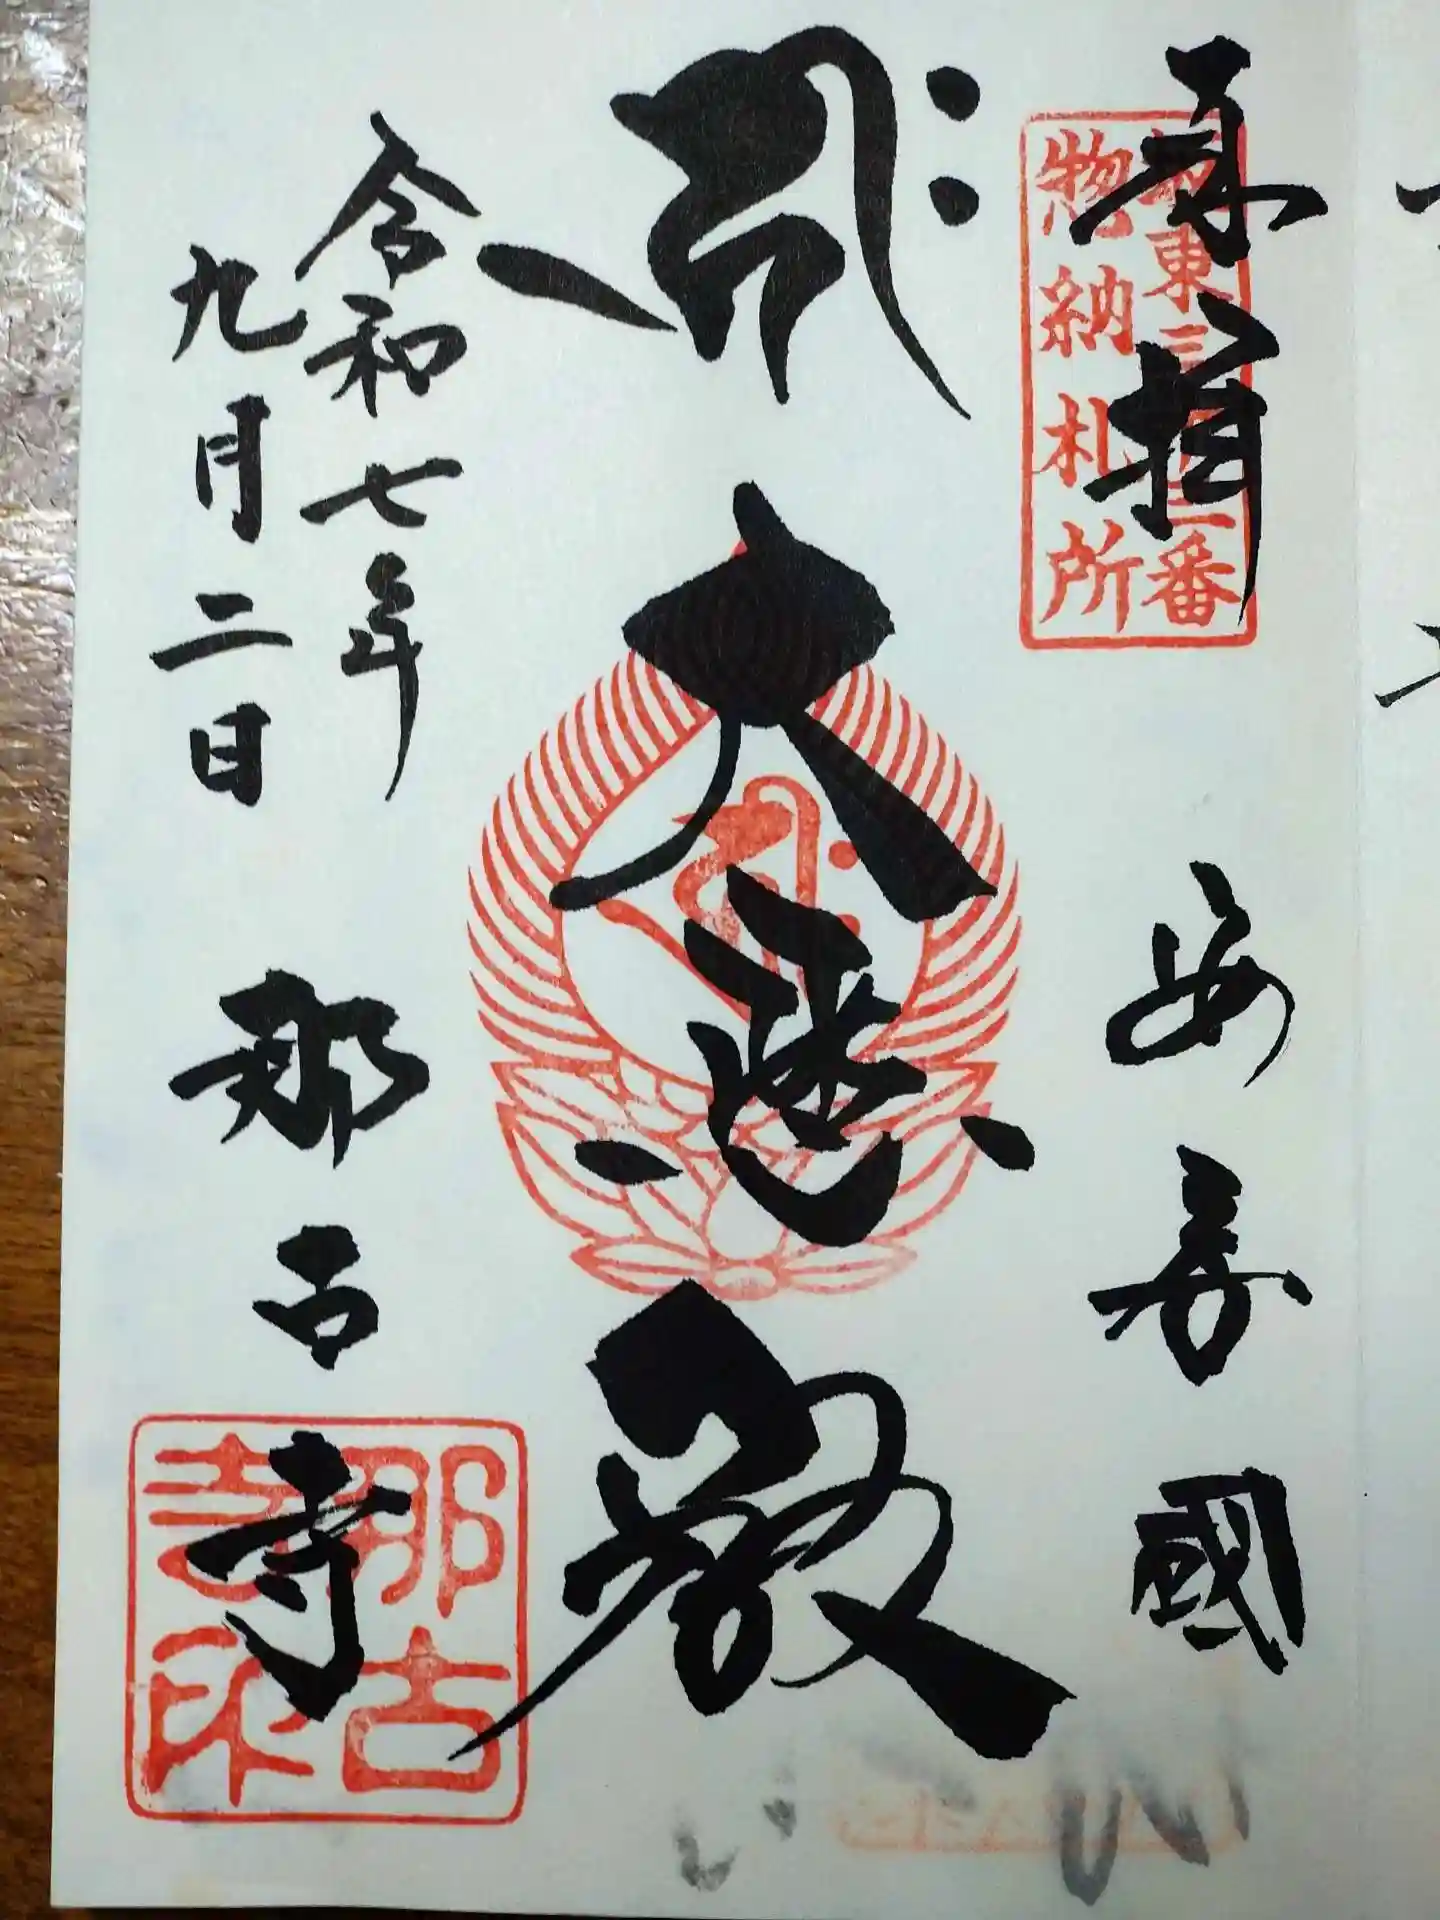 奉拝
坂東三十三番
惣納札所
安房國
キリーク
大悲殿
令和七年
九月二日
那古寺
那古
寺印